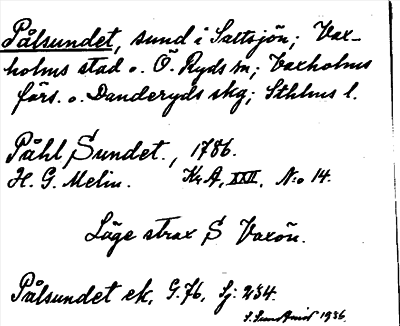 Pålsundet, sund i Saltsjön; Vax-
holms stad o. Ö. Ryds sn; Vaxholms
förs. o. Danderyds skg; Sthlms l.
Påhl Sundet., 1786.
H. G. Melin. Kr A, XXII, N:o 14.
Läge strax S Vaxön.
Pålsundet ek. G. 76, Sj: 234.
1936.